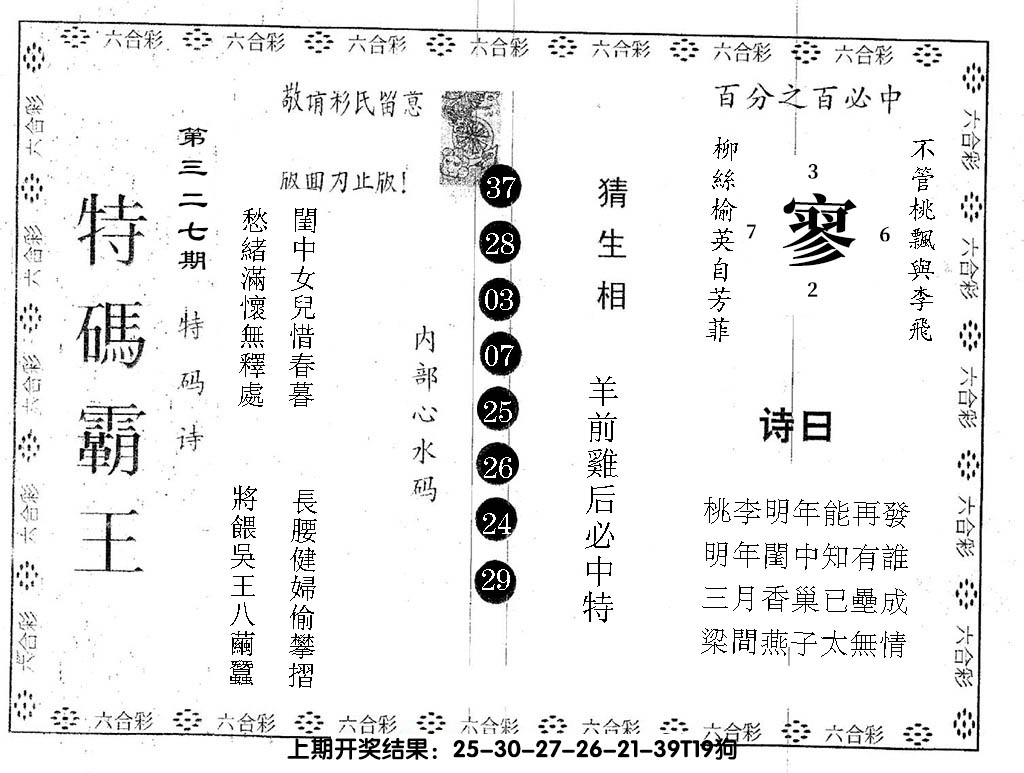 六合彩 六合彩 六合彩 六合彩 六合彩 六合彩 六合彩
六合彩
六合彩
六合彩
六合彩
六合彩
特碼霸王
第三二七期
特码诗
敬请彩民留意
版面勿止版!
閨中女兒惜春暮
愁緒滿懷無釋處
長腰健婦偷攀摺
將餵吳王八繭蠶
内部心水码
37
28
03
07
25
26
24
29
猜生相
羊前雞后必中特
百分之百必中
不管桃飄與李飛
柳絲榆英自芳菲
3
7 寥 6
2
诗日
桃李明年能再發
明年閨中知有誰
三月香巢已壘成
梁間燕子太無情
六合彩
六合彩
六合彩
六合彩
六合彩
六合彩 六合彩 六合彩 六合彩 六合彩 六合彩 六合彩
上期开奖结果：25-30-27-26-21-39T19狗